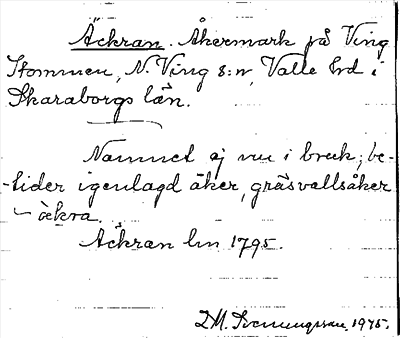 Äckran. Åkermark på Ving
Stommen, N. Ving s:n, Valle hd i
Skaraborgs län.
Namnet ej nu i bruk; be-
tider igenlagd åker, gräsvallsåker
- äkra.
Äckran lm 1795.
D. M. Svenungsson. 1975.